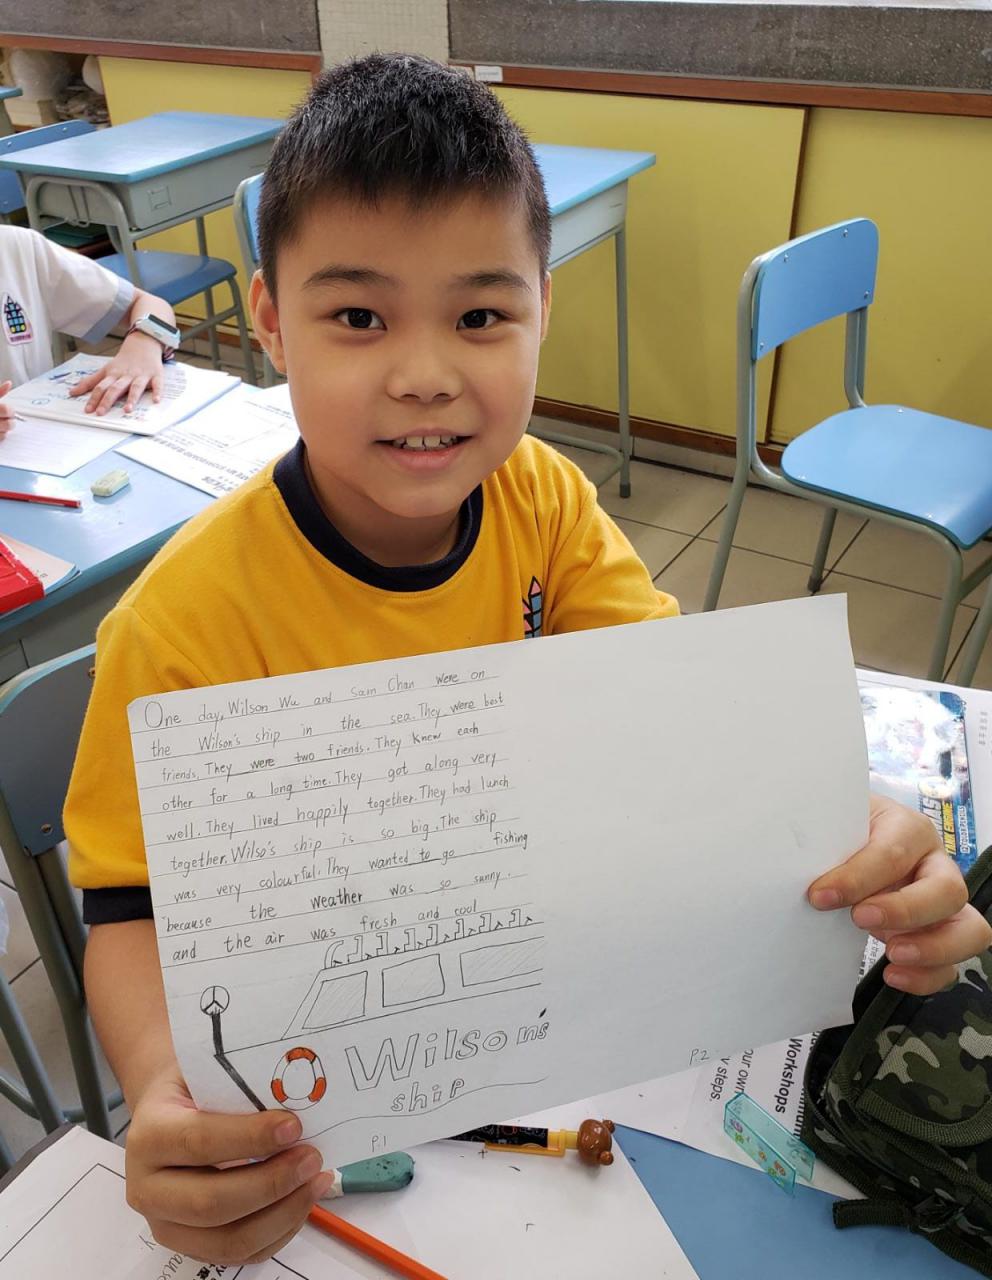 One day, Wilson Wu and Sam Chan were on
the Wilson's ship in the sea. They were best
friends. They were two friends. They knew each
other for a long time. They got along very
well. They lived happily together. They had lunch
together. Wilso's ship is so big. The ship
was very colourful. They wanted to go fishing
because the weather was so sunny.
and the air was fresh and cool
Wilson's
ship
P.1
P.2
our own
steps.
Workshops